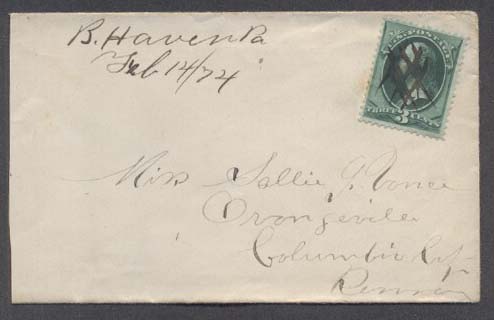 B. Haven Pa
Feb 14/74
U.S. POSTAGE
THREE 3 CENTS
Miss Sallie G. Vance
Orangeville
Columbia Co
Penna